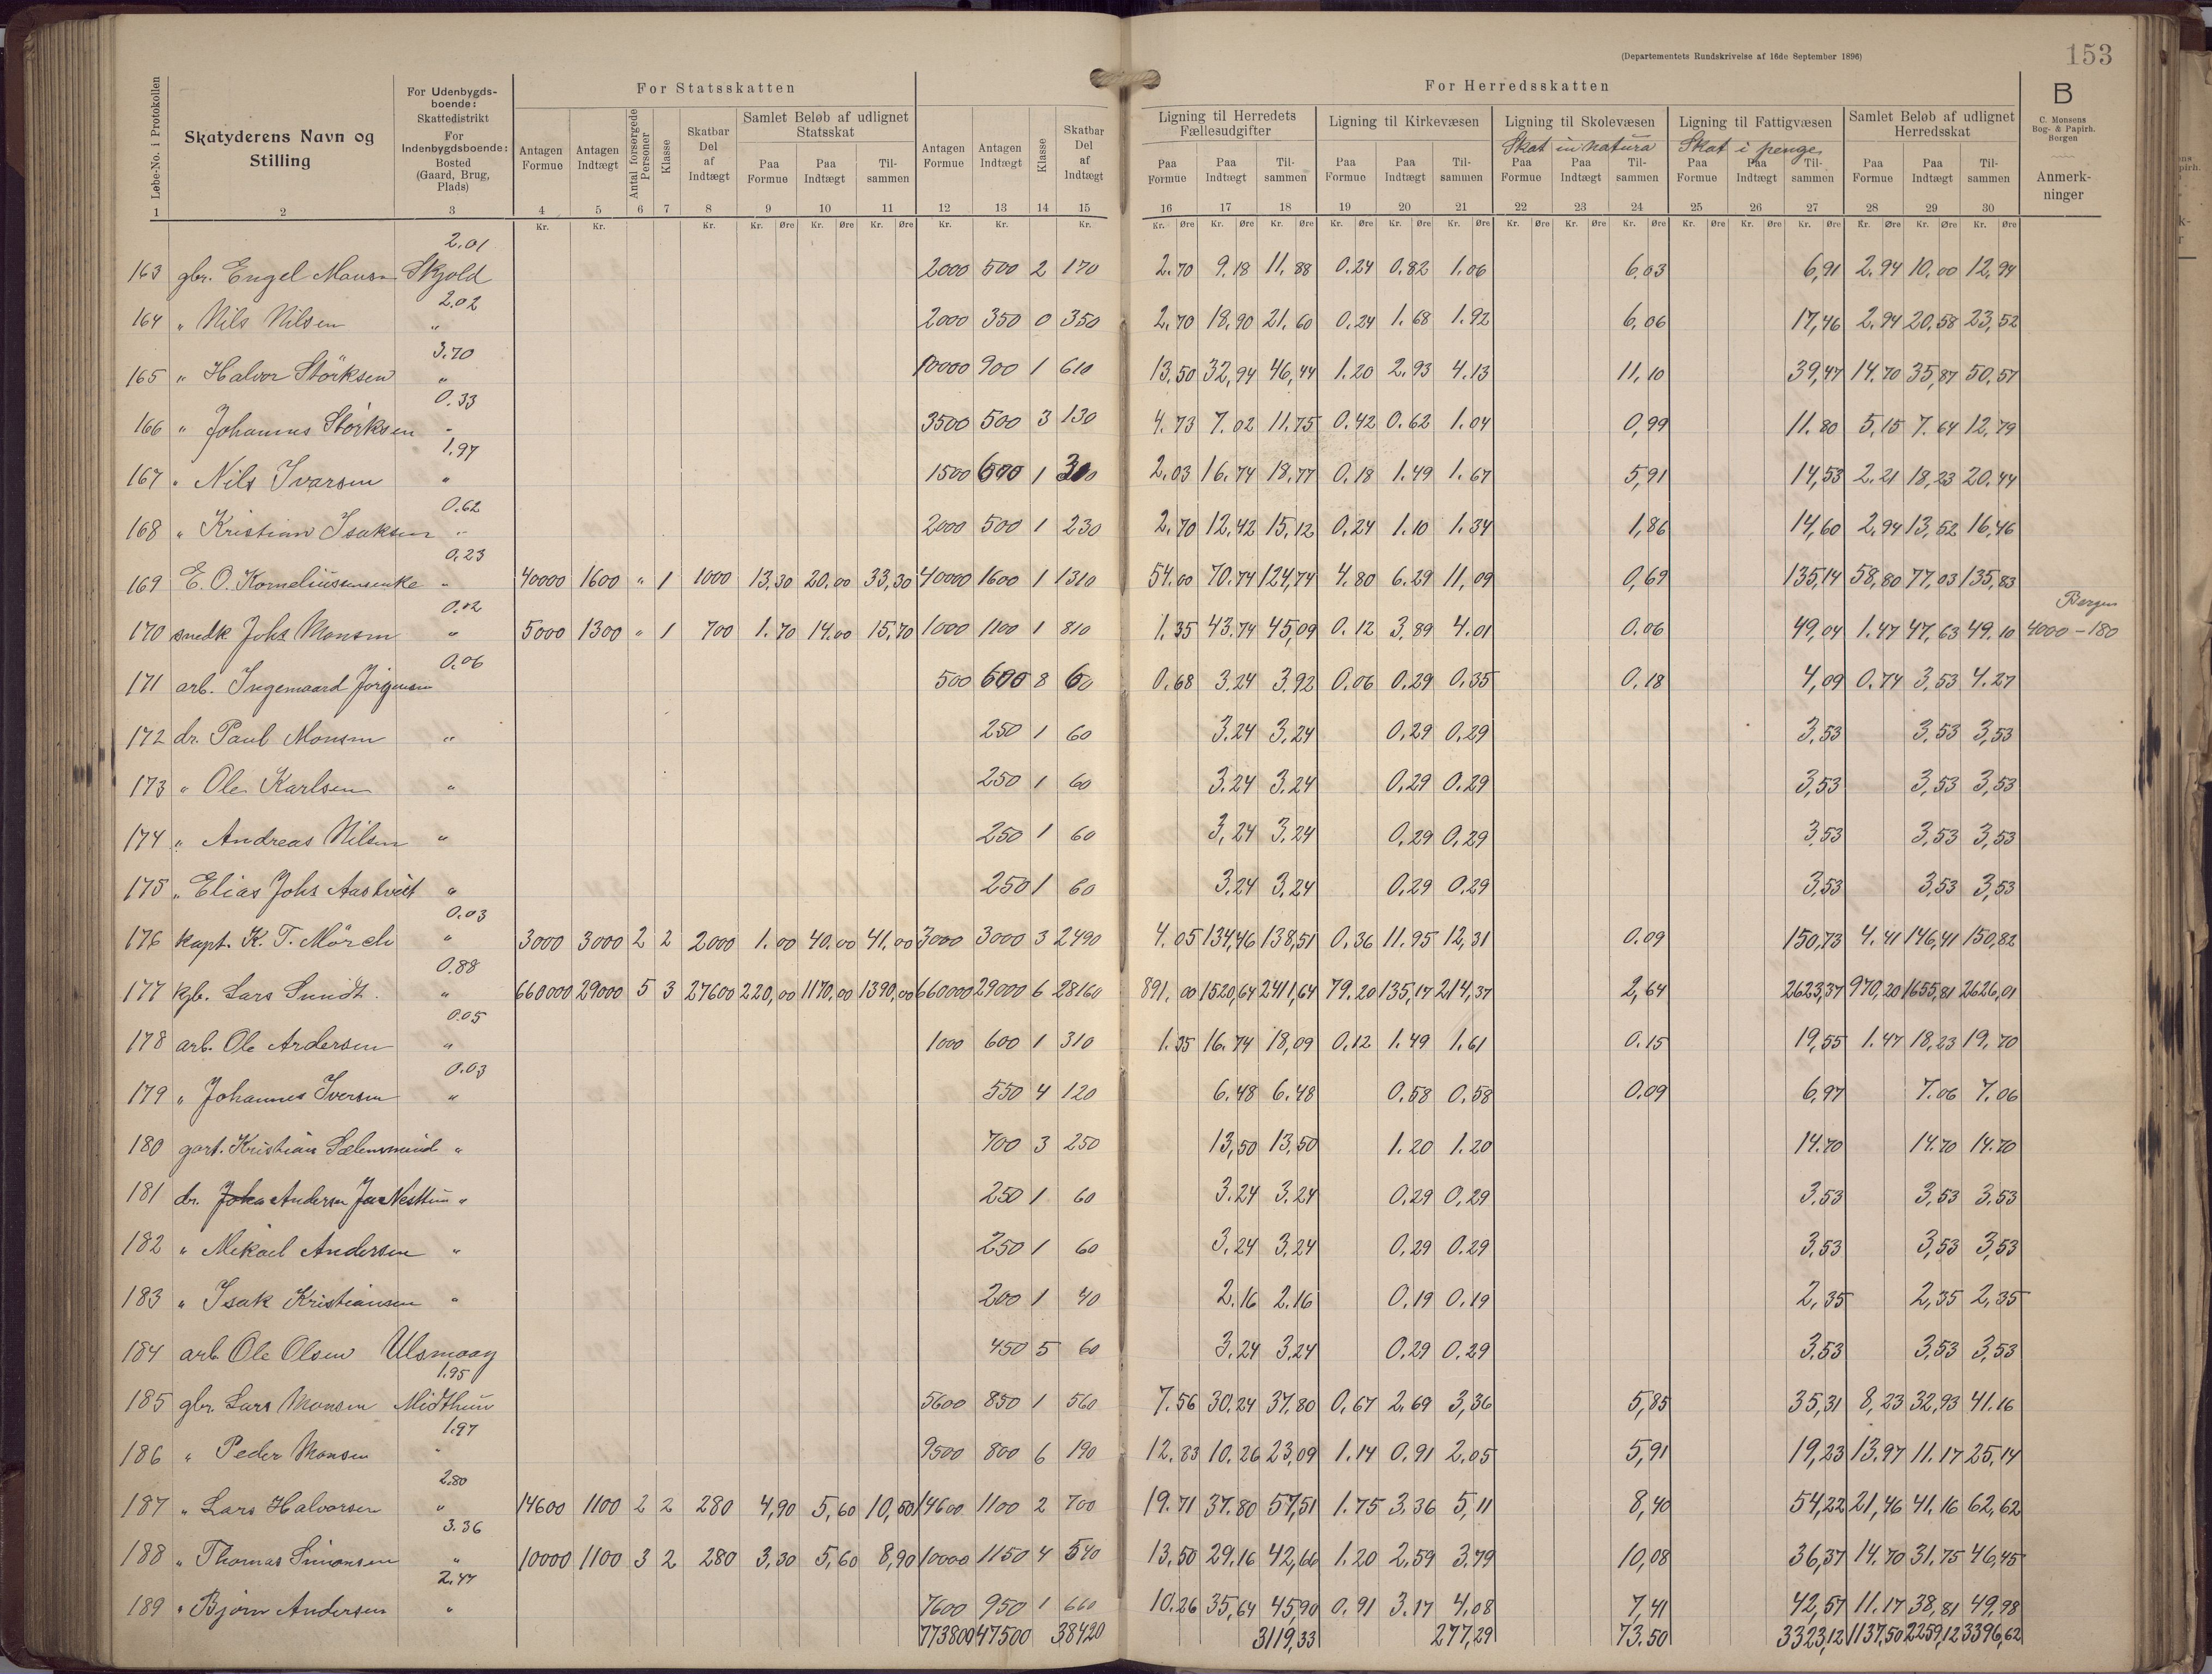 (Departementets Rundskrivelse af 16de September 1896)
153
For Statsskatten
For Herredsskatten
B
C. Monsens Bog- & Papirh. Bergen
Løbe-No. i Protokollen
Skatyderens Navn og Stilling
For Udenbygdsboende: Skattedistrikt For Indenbygdsboende: Bosted (Gaard, Brug, Plads)
Antagen Formue
Antagen Indtægt
Antal forsørgede Personer
Klasse
Skatbar Del af Indtægt
Samlet Beløb af udlignet Statsskat
Paa Formue Paa Indtægt Tilsammen
Antagen Formue
Antagen Indtægt
Klasse
Skatbar Del af Indtægt
Ligning til Herredets Fællesudgifter
Paa Formue Paa Indtægt Tilsammen
Ligning til Kirkevæsen
Paa Formue Paa Indtægt Tilsammen
Ligning til Skolevæsen
Skat in natura
Paa Formue Paa Indtægt Tilsammen
Ligning til Fattigvæsen
Skat i penge
Paa Formue Paa Indtægt Tilsammen
Samlet Beløb af udlignet Herredsskat
Paa Formue Paa Indtægt Tilsammen
Anmerkninger
1 2 3 4 5 6 7 8 9 10 11 12 13 14 15 16 17 18 19 20 21 22 23 24 25 26 27 28 29 30
Kr. Kr. Kr. Kr. Øre Kr. Øre Kr. Øre Kr. Kr. Kr. Kr. Øre Kr. Øre Kr. Øre Kr. Øre Kr. Øre Kr. Øre Kr. Øre Kr. Øre Kr. Øre Kr. Øre Kr. Øre Kr. Øre Kr. Øre Kr. Øre Kr. Øre
2.01
163 gbr. Engel Mons Skjold 2000 500 2 170 2.70 9.18 11.88 0.24 0.82 1.06 6.03 6,91 2.94 10.00 12,94
2.02
164 " Nils Nilsen " 2000 350 0 350 2.70 18.90 21.60 0.24 1.68 1.92 6.06 17,46 2.94 20.58 23,52
3.70
165 " Halvor Störksen " 10000 900 1 610 13.50 32,94 46,44 1.20 2.93 4.13 11,10 39,47 14.70 35,87 50,57
0.33
166 " Johannes Störksen " 3500 500 3 130 4.73 7.02 11.75 0.42 0.62 1.04 0,99 11.80 5,15 7.64 12,79
1,97
167 " Nils Ivarsen " 1500 600 1 310 2.03 16.74 18,77 0.18 1.49 1.67 5,91 14,53 2.21 18,23 20.44
0.62
168 " Kristian Isaksen " 2000 500 1 230 2.70 12,42 15,12 0.24 1.10 1.34 1,86 14,60 2,94 13,52 16,46
0,23
169 E. O. Korneliussens enke " 40000 1600 " 1 1000 13,30 20,00 33,30 40000 1600 1 1310 54.00 70.74 124,74 4.80 6.29 11,09 0,69 135,14 58,80 77,03 135,83
0.02 Bergen
170 snedk Johs Monsen " 5000 1300 " 1 700 1.70 14.00 15,70 1000 1100 1 810 1.35 43.74 45,09 0.12 3,89 4.01 0.06 49,04 1.47 47,63 49.10 4000-180
0.06
171 arb. Ingemaard Jörgensen 500 600 8 60 0.68 3.24 3.92 0.06 0.29 0.35 0.18 4,09 0.74 3,53 4.27
172 dr. Paul Monsen " 250 1 60 3.24 3,24 0.29 0,29 3,53 3.53 3,53
173 " Ole Karlsen " 250 1 60 3.24 3.24 0,29 0.29 3,53 3,53 3,53
174 " Andreas Nilsen " 250 1 60 3,24 3.24 0.29 0,29 3.53 3,53 3,53
175 " Elias Johs Aastveit " 250 1 60 3.24 3.24 0.29 0.29 3,53 3,53 3,53
0.03
176 kapt. K. T. Mörch " 3000 3000 2 2 2000 1.00 40.00 41.00 3000 3000 3 2490 4.05 134,46 138,51 0.36 11.95 12,31 0.09 150,73 4.41 146,41 150,82
0.88
177 kjb. Lars Sundt. " 660000 29000 5 3 27600 220,00 1170,00 1390,00 660000 29000 6 28160 891.00 1520,64 2411,64 79.20 135,17 214,37 2,64 2623,37 970,20 1655,81 2626,01
0.05
178 arb. Ole Andersen " 1000 600 1 310 1.35 16.74 18,09 0.12 1.49 1.61 0.15 19,55 1.47 18,23 19,70
0.03
179 " Johannes Iversen " 550 4 120 6.48 6.48 0.58 0.58 0.09 6,97 7.06 7.06
180 gart. Kristian Sælensmind " 700 3 250 13,50 13,50 1.20 1.20 14.70 14.70 14.70
181 dr. Johs Andersen Nesttun " 250 1 60 3.24 3.24 0.29 0,29 3.53 3,53 3,53
182 " Mikael Andersen " 250 1 60 3.24 3,24 0.29 0.29 3,53 3,53 3,53
183 " Isak Kristiansen " 200 1 40 2.16 2.16 0.19 0.19 2,35 2,35 2,35
184 arb. Ole Olsen Ulsmaag 450 5 60 3.24 3.24 0.29 0.29 3.53 3,53 3,53
1.95
185 gbr. Lars Monsen Midthun 5600 850 1 560 7.56 30.24 37.80 0,67 2.69 3,36 5,85 35,31 8,23 32,93 41.16
1.97
186 " Peder Monsen " 9500 800 6 190 12.83 10.26 23,09 1.14 0.91 2.05 5,91 19,23 13.97 11.17 25,14
2.80
187 " Lars Halvorsen " 14600 1100 2 2 280 4,90 5,60 10,50 14600 1100 2 700 19.71 37.80 57,51 1.75 3,36 5,11 8,40 54,22 21,46 41.16 62,62
3.36
188 " Thomas Simonsen " 10000 1100 3 2 280 3,30 5,60 8,90 10000 1150 4 540 13,50 29,16 42,66 1.20 2,59 3.79 10,08 36,37 14.70 31.75 46,45
2.47
189 " Bjørn Andersen " 7600 950 1 660 10.26 35,64 45,90 0.91 3.17 4.08 7,41 42,57 11.17 38,81 49,98
773800 47500 38420 3119,33 277,29 73.50 3323,12 1137,50 2259,12 3396,62